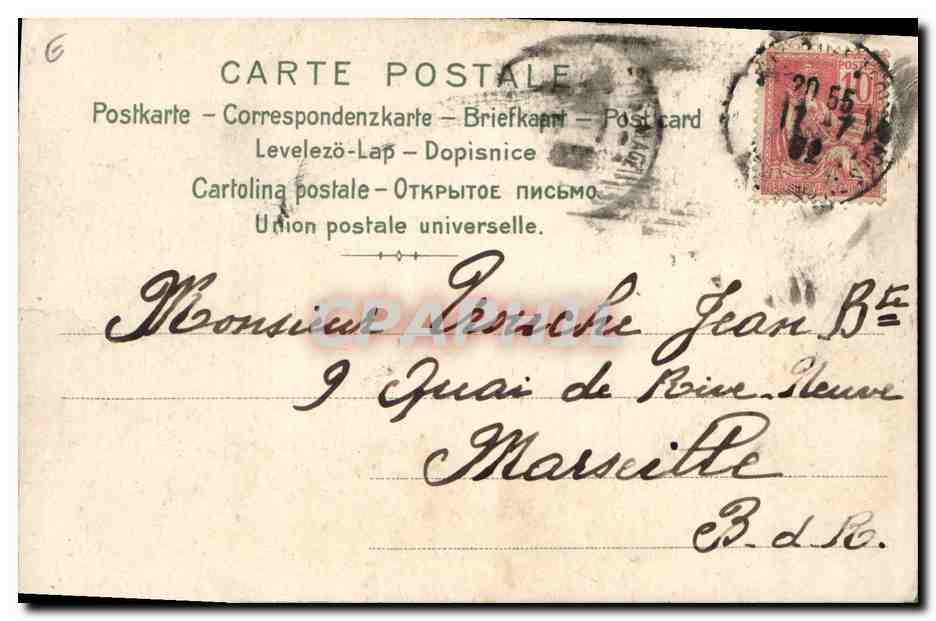 CARTE POSTALE
Postkarte – Correspondenzkarte – Briefkaart – Post card
Levelező-Lap – Dopisnice
Cartolina postale – Открытое письмо
Union postale universelle.
POSTES 10
20 55
17 -7
02
CPAPHIL
Monsieur Trouche Jean Bte
9 Quai de Rive-Neuve
Marseille
B. d. R.